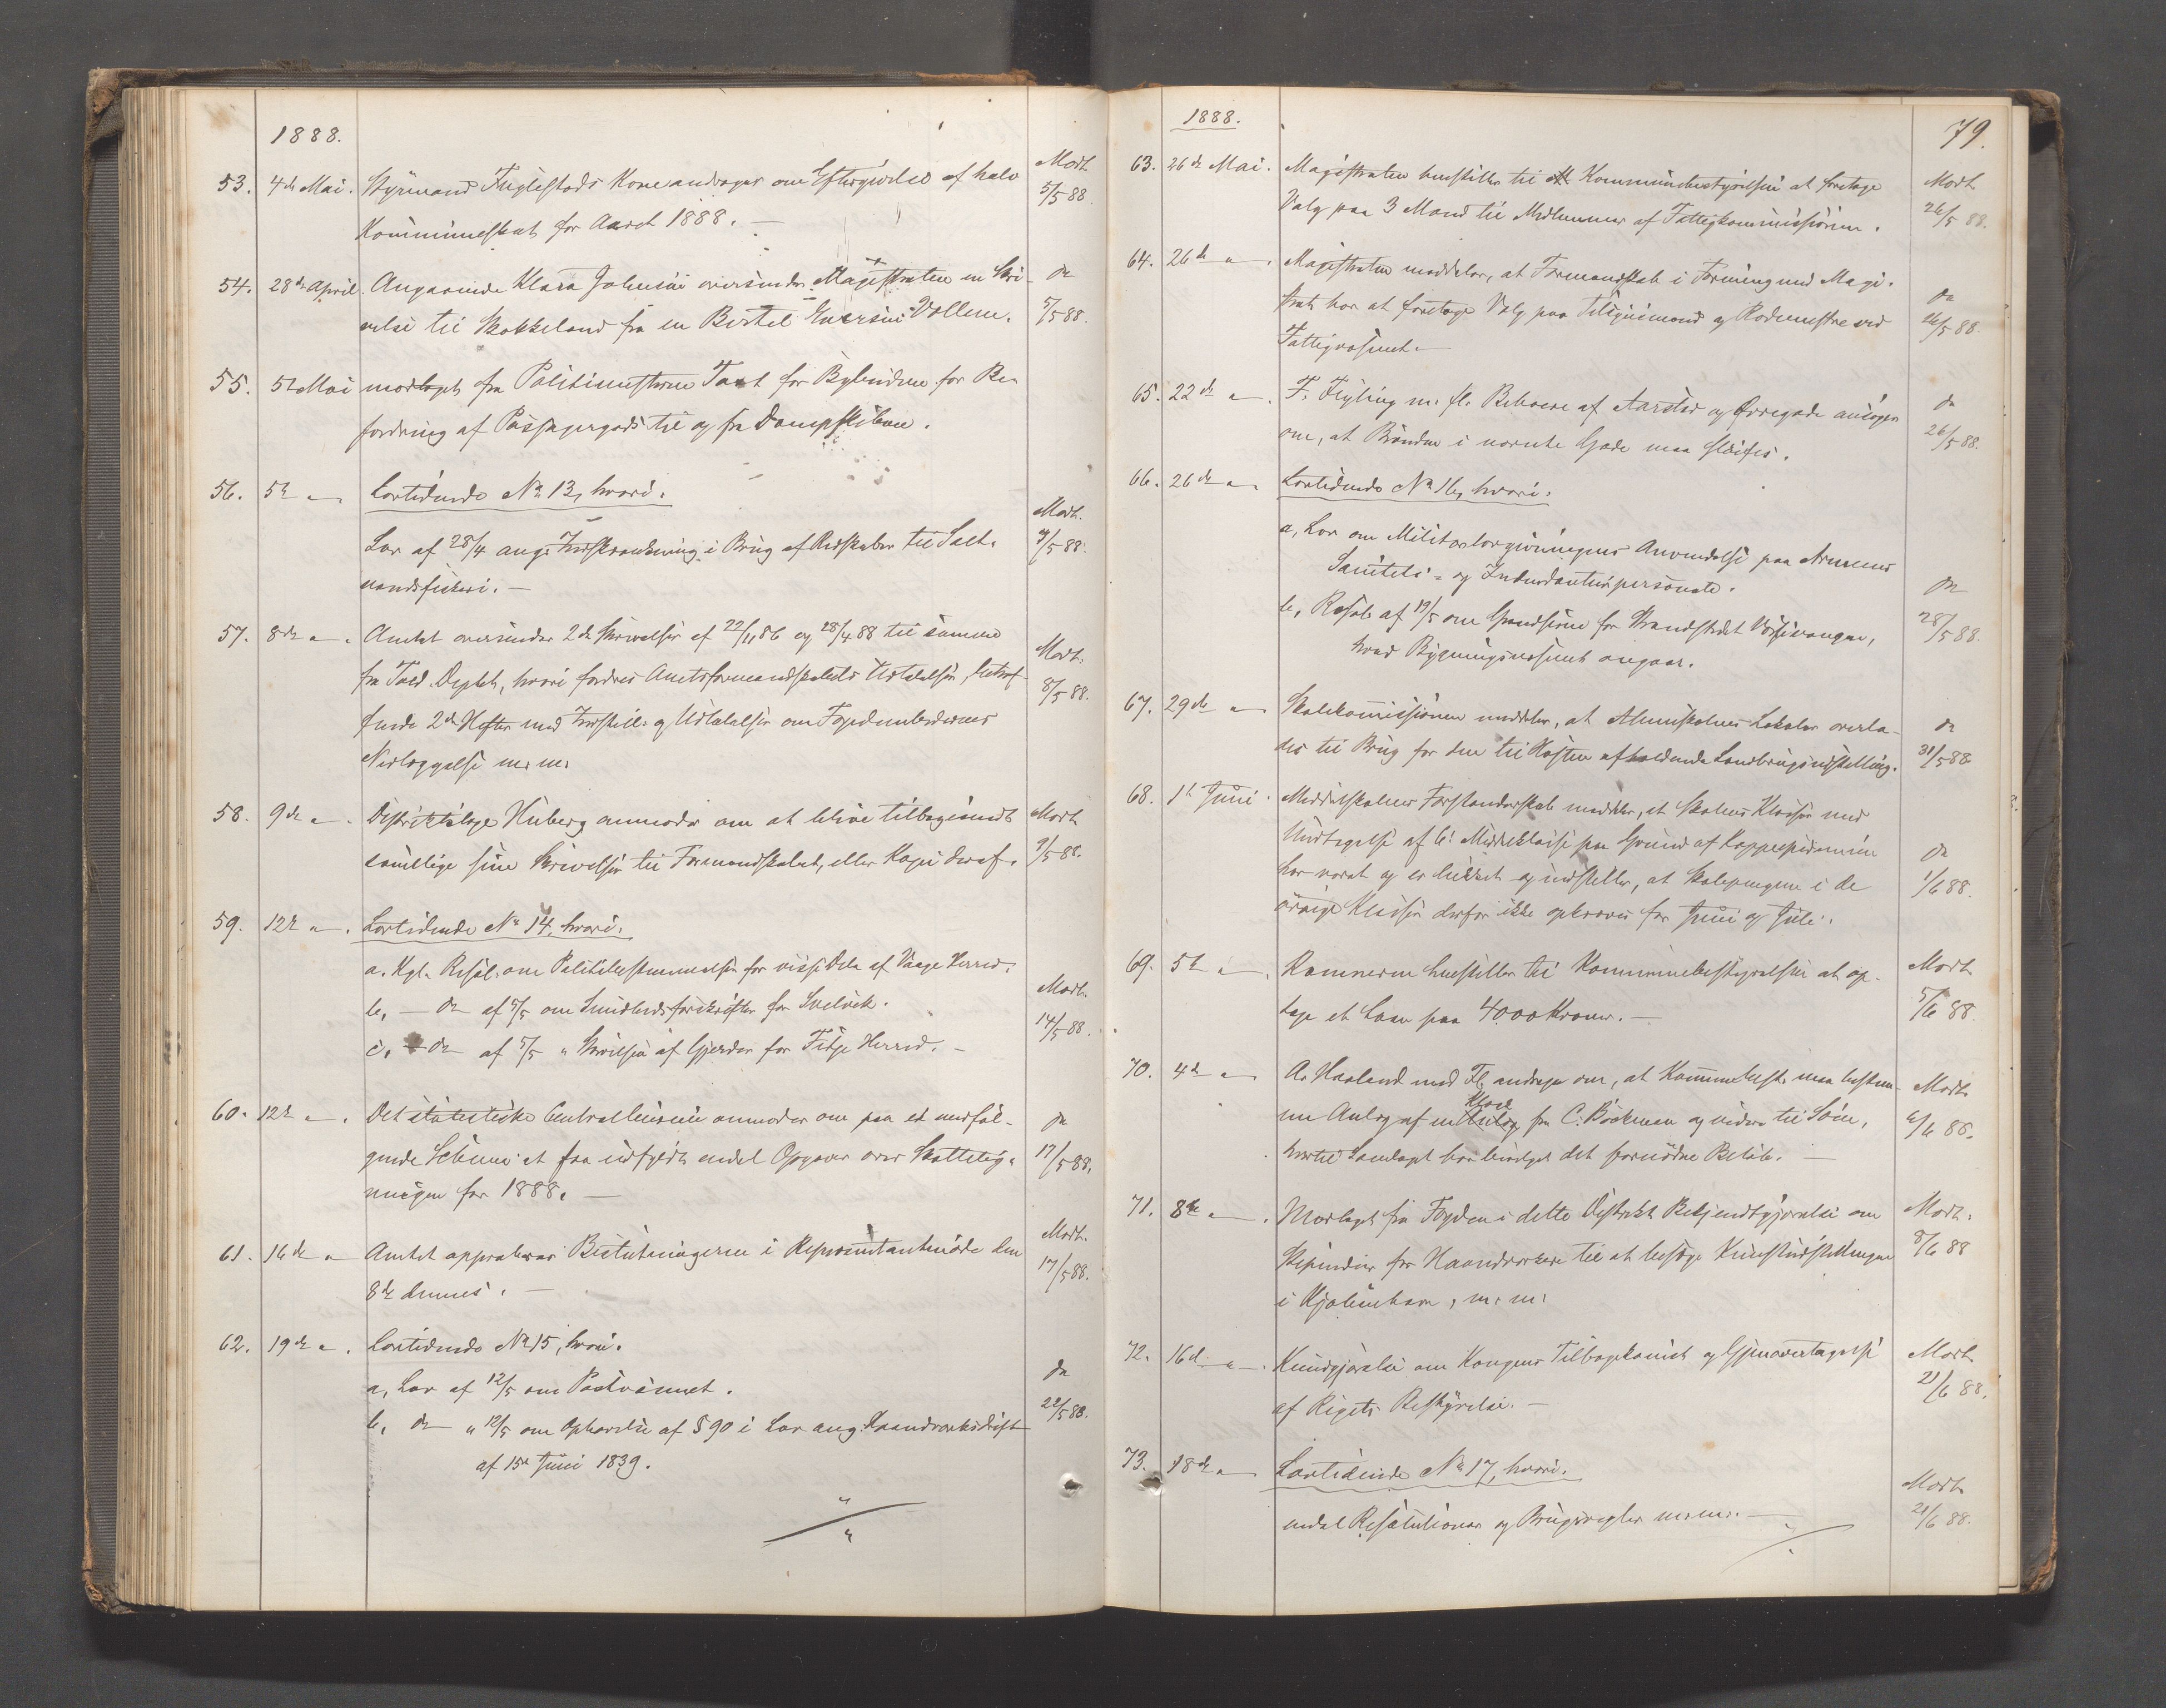 1888.
53. 4de Mai. Styrmand Fuglestads Kone andrager om Eftergivelse af halv Modt.
Kommuneskat for Aaret 1888. — 5/5 88.
54. 28de April. Angaaende Klara Johnsen oversender Magistraten en Skri- do
velse til Skokkeland fra en Bertel Eversen Vollum. 5/5 88.
55. 5te Mai modtaget fra Politimesteren Taxt for Bybudene for Be-
fordring af Passagergods til og fra Dampskibene.
56. 5te " Lovtidende No 13, hvori: Modt.
Lov af 28/4 angd. Indskrænkning i Brug af Redskaber til Salt- 7/5 88.
vandsfiskeri. —
57. 8de " Amtet oversender 2de Skrivelser af 22/11 86 og 28/4 88 til samme Modt.
fra Just. Deptet, hvori fordres Amtsformandskabets Udtalelser, betræf- 8/5 88.
fende 2de Hefter med Indstill. og Udtalelser om Fogedembedernes
Nedlæggelse m. m.
58. 9de " Distriktslæge Huberg anmoder om at blive tilbagesendt Modt.
samtlige sine Skrivelser til Formandskabet, eller Kopi deraf. 9/5 88.
59. 12te " Lovtidende No 14, hvori:
a. Kgl. Resol. om Politibestemmelser for visse Dele af Vaage Herred. Modt.
b, — do af 5/5 om Sundhedsforskrifter for Svelvik. 14/5 88.
c, — do af 5/5 " Skrivelsen af Gjerder for Fitje Herred. —
60. 12te " Det statistiske Centralbureau anmoder om paa et medføl- do
gende Schema at faa udfyldt endel Opgaver over Skattelig- 17/5 88.
ningen for 1888. —
61. 16de " Amtet approberer Beslutningerne i Repræsentantmøde den Modt.
8de dennes. — 17/5 88.
62. 19de " Lovtidende No 15, hvori:
a, Lov af 12/5 om Postvæsenet. do
b, do " 12/5 om Ophævelse af § 90 i Lov ang. Haandværksdrift 22/5 88.
af 15de Juni 1839.
1888. 79.
63. 26de Mai. Magistraten henstiller til Kommunebestyrelsen at foretage Modt.
Valg paa 3 Mænd til Medlemmer af Fattigkommissionen. 26/5 88.
64. 26de " Magistraten meddeler, at Formandskab i Forening med Magi- do
strat har at foretage Valg paa Tilsynsmænd og Rodemestre ved 26/5 88.
Fattigvæsenet. —
65. 22de " F. Fryling m. fl. Beboere af Aarstad og Ørregade ansøger do
om, at Brønden i nævnte Gade maa sløifes. 26/5 88.
66. 26de " Lovtidende No 16, hvori:
a, Lov om Militærlovgivningens Anvendelse paa Armeens
Sanitets- og Intendanturpersonale. do
b, Resol. af 19/5 om Grændserne for Strandstedet Vossevangen, 28/5 88.
hvad Bygningsvæsenet angaar.
67. 29de " Skolekommissionen meddeler, at Almueskolens Lokaler overla- do
des til Brug for den til Høsten afholdende Landbrugsudstilling. 31/5 88.
68. 1te Juni. Middelskolens Forstanderskab meddeler, at Skolens Klasser med
Undtagelse af 6. Middelklasse paa Grund af Koppeepidemien do
har været og er lukket og indstiller, at Skolepengene i de 1/6 88.
øvrige Klasser derfor ikke opkræves for Juni og Juli.
69. 5te " Kæmneren henstiller til Kommunebestyrelsen at op- Modt.
tage et Laan paa 4000 Kroner. — 5/6 88.
70. 4de " A. Haaland med Fl. andrager om, at Kommunebest. maa bestem- Modt.
me Anlæg af en Kloak fra C. Bøckman og videre til Søen, 6/6 88.
hvortil Samlaget har bevilget det fornødne Beløb. —
71. 8de " Modtaget fra Fogden i dette Distrikt Bekjendtgjørelse om Modt.
Stipendier for Haandværkere til at besøge Kunstudstillingen 8/6 88
i Kjøbenhavn, m. m.
72. 16d. " Kundgjørelse om Kongens Tilbagekomst og Gjenovertagelse Modt.
af Rigets Bestyrelse. — 21/6 88.
73. 18de " Lovtidende No 17, hvori: Modt.
endel Resolutioner og Brugsregler m. m. — 21/6 88.